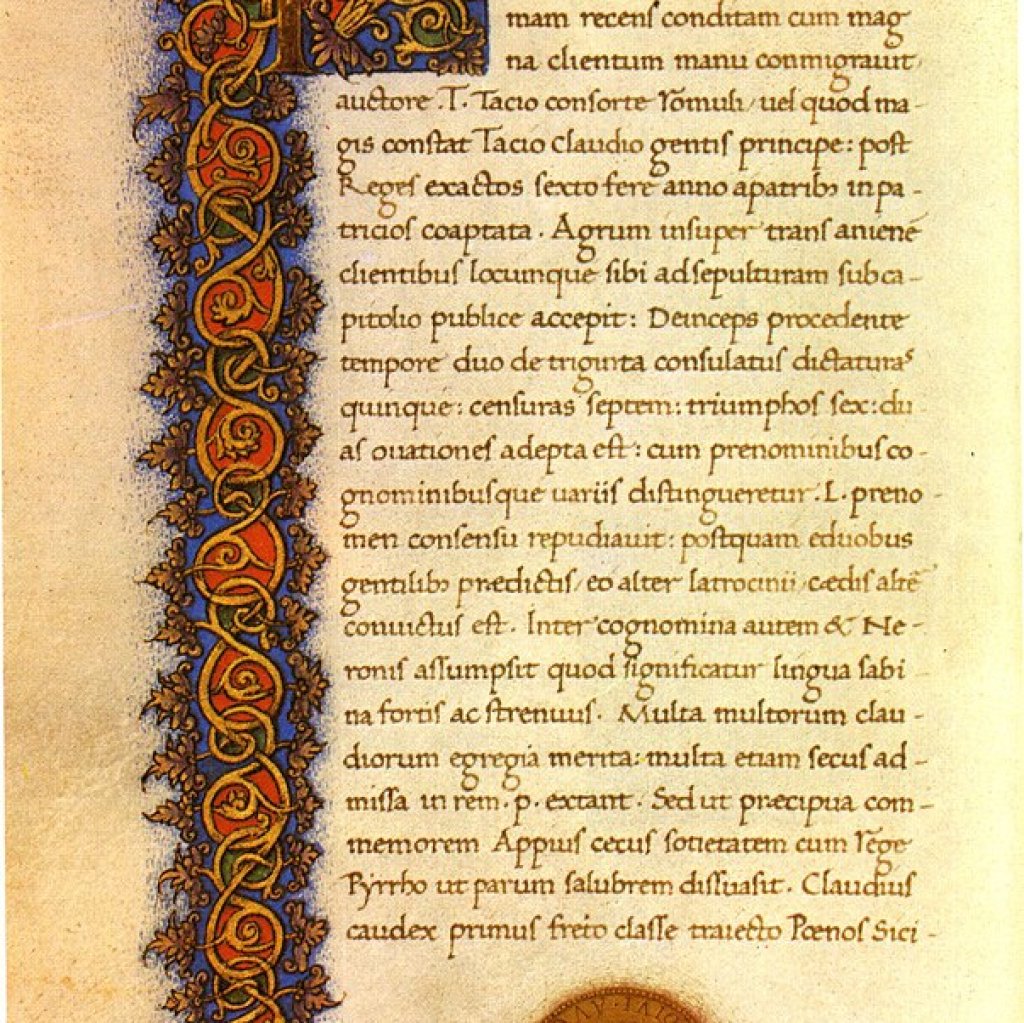 mam recenſ conditam cum mag
na clientum manu conmigrauit
auctore . T. Tacio conſorte Romuli, uel quod ma-
gis conſtat Tacio Claudio gentiſ principe: poſt
Regeſ exactos ſexto fere anno apatribꝫ in pa-
tricioſ coaptata. Agrum inſuper tranſ anienē
clientibuſ locumque ſibi ad ſepulturam ſub ca-
pitolio publice accepit: Deinceps procedente
tempore duo de triginta conſulatuſ dictaturaſ
quinque: cenſuras ſeptem: triumphoſ ſex: du
aſ ouationeſ adepta eſt: cum prenominibuſ co-
gnominibuſque uariiſ diſtingueretur. L. preno-
men conſenſu repudiauit: poſtquam eduobus
gentilibꝫ prædictiſ, eo alter latrocinii, cædiſ altē
conuictuſ eſt. Inter cognomina autem & Ne-
roniſ aſſumpſit quod ſignificatur lingua ſabi-
na fortiſ ac ſtrenuuſ. Multa multorum clau-
diorum egregia merita: multa etiam ſecus ad-
miſſa in rem. p. extant. Sed ut præcipua com-
memorem Appiuſ cecuſ ſotietatem cum Rege
Pyrrho ut parum ſalubrem diſſuaſit. Claudiuſ
caudex primuſ freto claſſe traiecto Pœnoſ Sici-